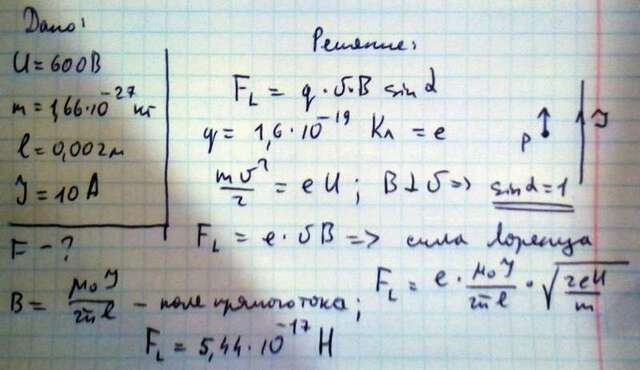 Дано:
U = 600 В
m = 1,66·10⁻²⁷ кг
l = 0,002 м
J = 10 А
F - ?
Решение:
F_L = q·υ·B sin α
q = 1,6·10⁻¹⁹ Кл = e
mυ²/2 = eU; B⊥υ => sin α = 1
P
J
F_L = e·υB => сила Лоренца
B = μ₀J/2πl - поле прямого тока;
F_L = e·μ₀J/2πl·√(2eU/m)
F_L = 5,44·10⁻¹⁷ Н